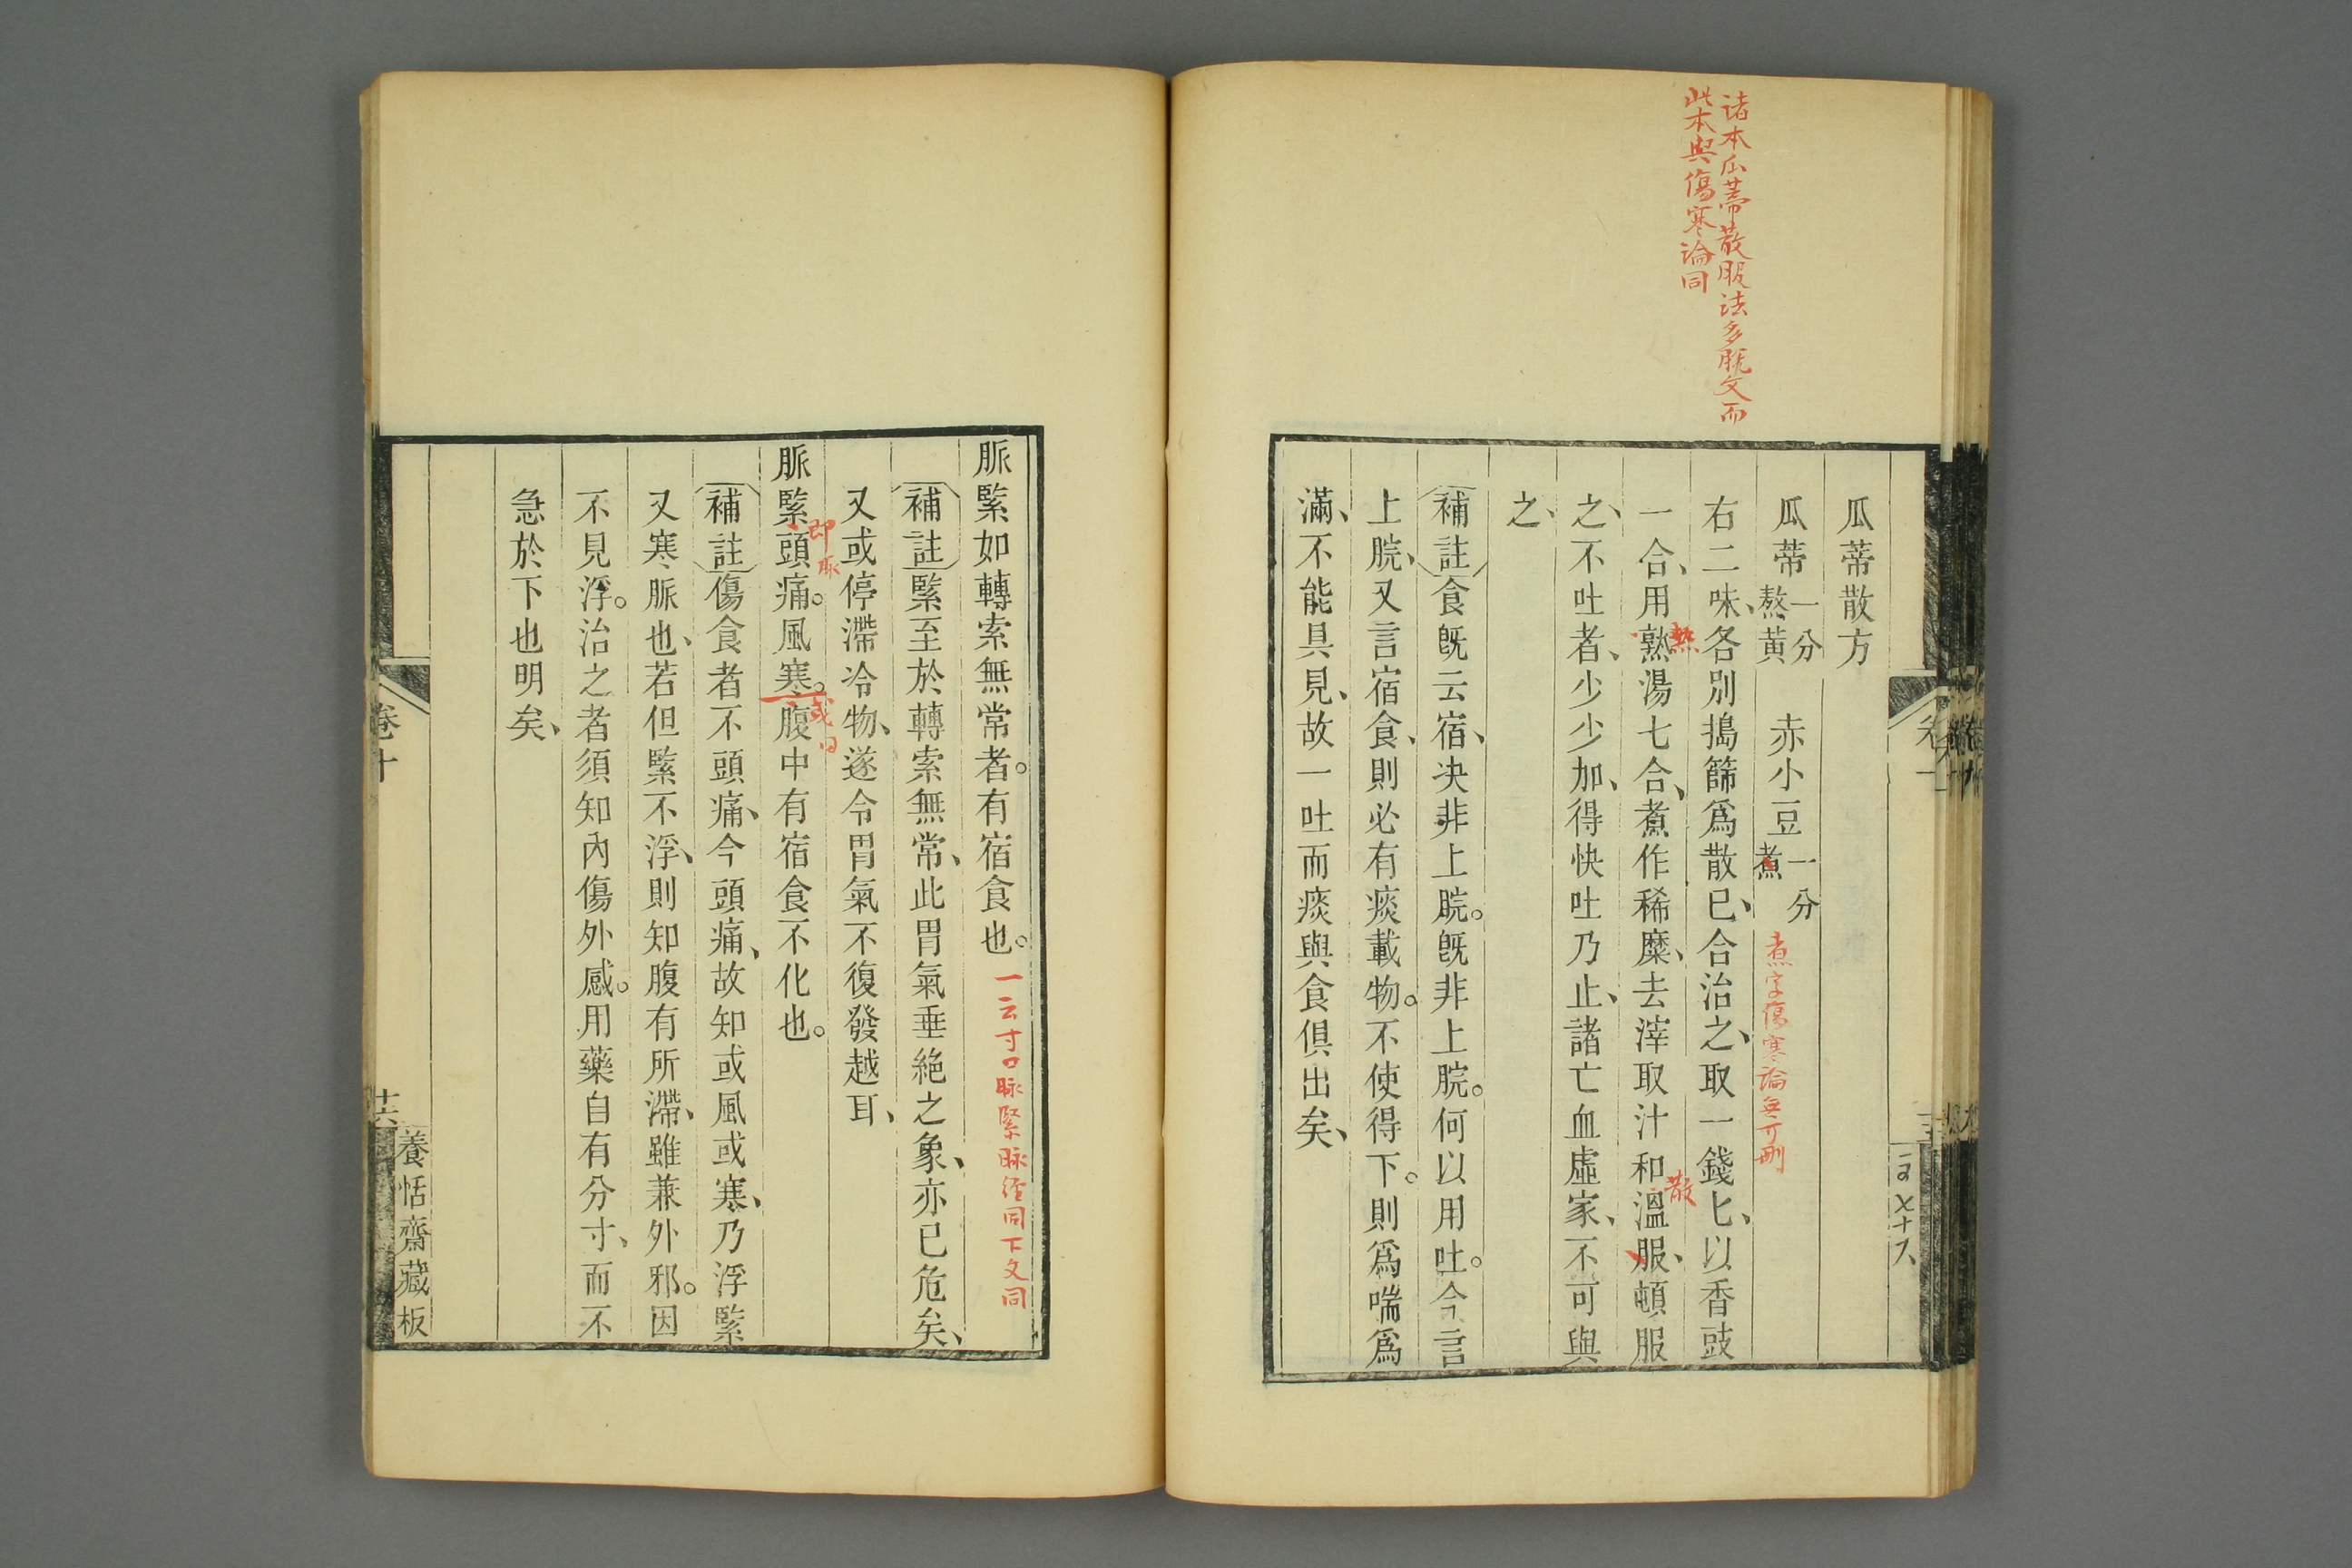 諸本瓜蒂散服法多脫文而
此本與傷寒論同
瓜蒂散方
瓜蒂一分熬黃 赤小豆一分煮 煮字傷寒論無可刪
右二味、各別搗篩爲散已、合治之、取一錢匕、以香豉
一合、用熟湯七合、煮作稀糜、去滓取汁和溫服、頓服
熱
散
之、不吐者、少少加、得快吐乃止、諸亡血虛家、不可與
之、
補註食旣云宿、决非上脘。旣非上脘。何以用吐。今言
上脘、又言宿食、則必有痰載物。不使得下。則爲喘爲
滿、不能具見、故一吐而痰與食俱出矣、
脈緊如轉索無常者。有宿食也。一云寸口脉緊脉經同下文同
補註緊至於轉索無常、此胃氣垂絶之象、亦已危矣、
又或停滯冷物、遂令胃氣不復發越耳、
脈緊頭痛。風寒。腹中有宿食不化也。
即脉
或曰
補註傷食者不頭痛、今頭痛、故知或風或寒、乃浮緊
又寒脈也、若但緊不浮、則知腹有所滯、雖兼外邪。因
不見浮。治之者須知內傷外感。用藥自有分寸、而不
急於下也明矣、
卷十
十六
養恬齋藏板